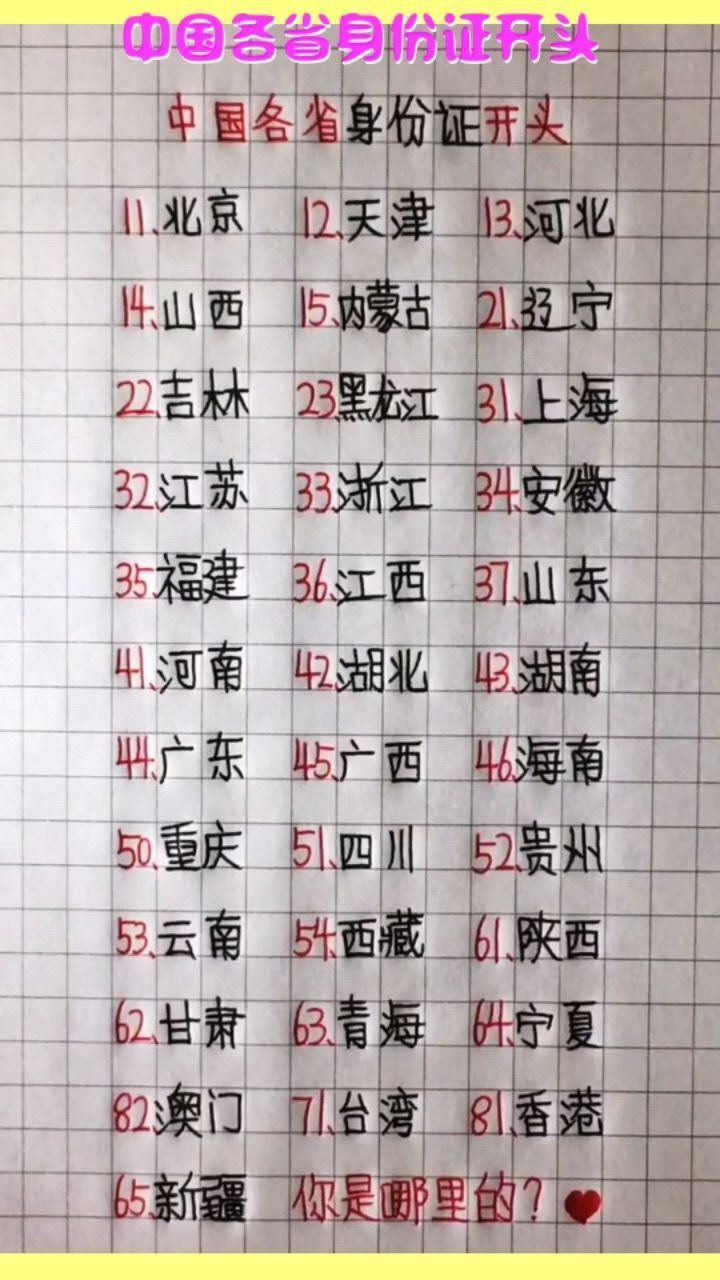 中国各省身份证开头
中国各省身份证开头
11、北京 12、天津 13、河北
14、山西 15、内蒙古 21、辽宁
22、吉林 23、黑龙江 31、上海
32、江苏 33、浙江 34、安徽
35、福建 36、江西 37、山东
41、河南 42、湖北 43、湖南
44、广东 45、广西 46、海南
50、重庆 51、四川 52、贵州
53、云南 54、西藏 61、陕西
62、甘肃 63、青海 64、宁夏
82、澳门 71、台湾 81、香港
65、新疆 你是哪里的?